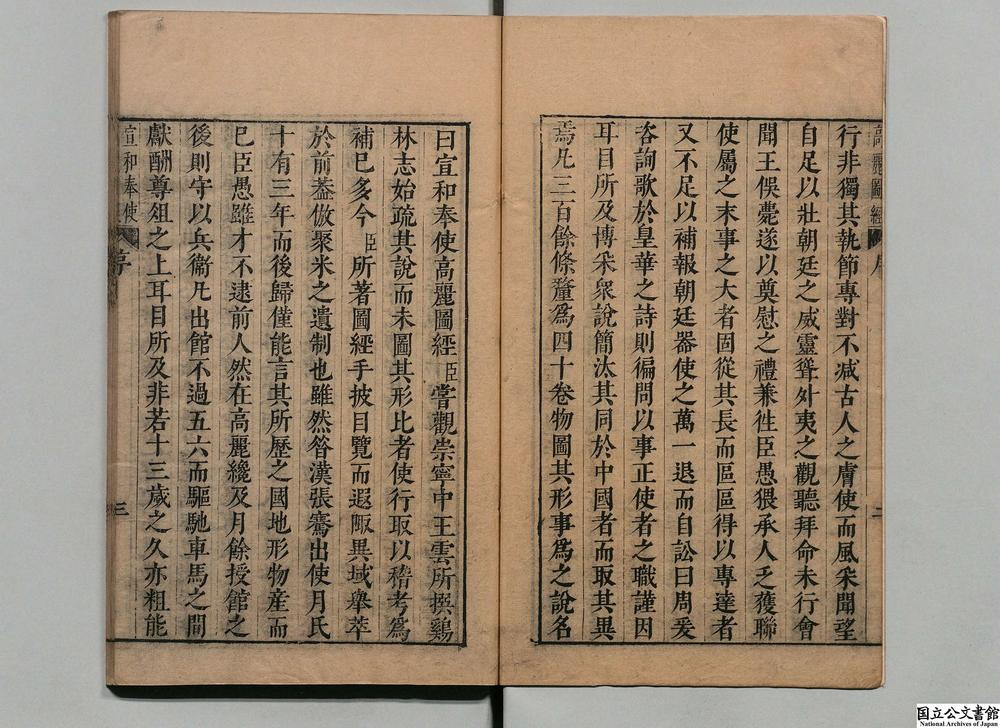 高麗圖經 序 二
行非獨其執節專對不减古人之膚使而風采聞望
自足以壯朝廷之威靈聳外夷之觀聽拜命未行會
聞王俁薨遂以奠慰之禮兼徃臣愚猥承人乏獲聯
使屬之末事之大者固從其長而區區得以專達者
又不足以補報朝廷器使之萬一退而自訟曰周爰
咨詢歌於皇華之詩則徧問以事正使者之職謹因
耳目所及博采衆說簡汰其同於中國者而取其異
焉凡三百餘條釐爲四十卷物圖其形事爲之說名
曰宣和奉使高麗圖經臣嘗觀崇寧中王雲所撰鷄
林志始疏其說而未圖其形比者使行取以稽考爲
補已多今臣所著圖經手披目覽而遐陬異域舉萃
於前葢倣聚米之遺制也雖然昝漢張騫出使月氏
十有三年而後歸僅能言其所歷之國地形物産而
已臣愚雖才不逮前人然在高麗纔及月餘授館之
後則守以兵衞凡出館不過五六而驅馳車馬之間
獻酬尊俎之上耳目所及非若十三歲之久亦粗能
宣和奉使 序 三
国立公文書館
National Archives of Japan